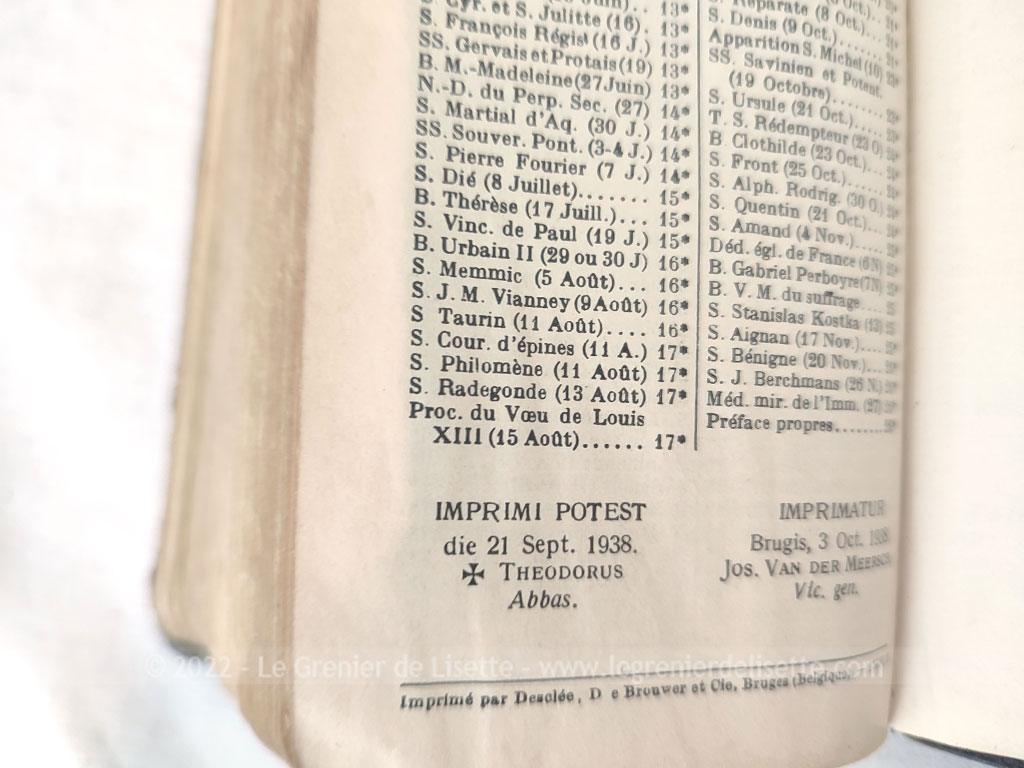 S. Cyr. et S. Julitte (16). 13*
S. François Régis (16 J.) 13*
SS. Gervais et Protais (19) 13*
B. M.-Madeleine (27 Juin) 13*
N.-D. du Perp. Sec. (27) 14*
S. Martial d'Aq. (30 J.) 14*
SS. Souver. Pont. (3-4 J.) 14*
S. Pierre Fourier (7 J.) 14*
S. Dié (8 Juillet)....... 15*
B. Thérèse (17 Juill.)... 15*
S. Vinc. de Paul (19 J.) 15*
B. Urbain II (29 ou 30 J) 16*
S. Memmic (5 Août)... 16*
S. J. M. Vianney (9 Août) 16*
S Taurin (11 Août).... 16*
S. Cour. d'épines (11 A.) 17*
S. Philomène (11 Août) 17*
S. Radegonde (13 Août) 17*
Proc. du Vœu de Louis
XIII (15 Août)...... 17*
Réparate (8 Oct.)..
S. Denis (9 Oct.).......
Apparition S. Michel (16)
SS. Savinien et Potent.
(19 Octobre).......
S. Ursule (21 Oct.)....
T. S. Rédempteur (23 O)
B Clothilde (23 Oct.)...
S. Front (25 Oct.)....
S. Alph. Rodrig. (30 O.)
S. Quentin (21 Oct.)...
S. Amand (4 Nov.)....
Déd. égl. de France (6 N)
B. Gabriel Perboyre (7 N)
B. V. M. du suffrage....
S. Stanislas Kostka (13)
S. Aignan (17 Nov.)....
S. Bénigne (20 Nov.)...
S. J. Berchmans (26 N.)
Méd. mir. de l'Imm. (27)
Préface propres........
IMPRIMI POTEST
die 21 Sept. 1938.
✠ THEODORUS
Abbas.
IMPRIMATUR
Brugis, 3 Oct. 1938.
Jos. VAN DER MEERSCH
Vic. gen.
© 2022 - Le Grenier de Lisette - www.legrenierdelisette.com
Imprimé par Desclée, D e Brouwer et Cie, Bruges (Belgique).